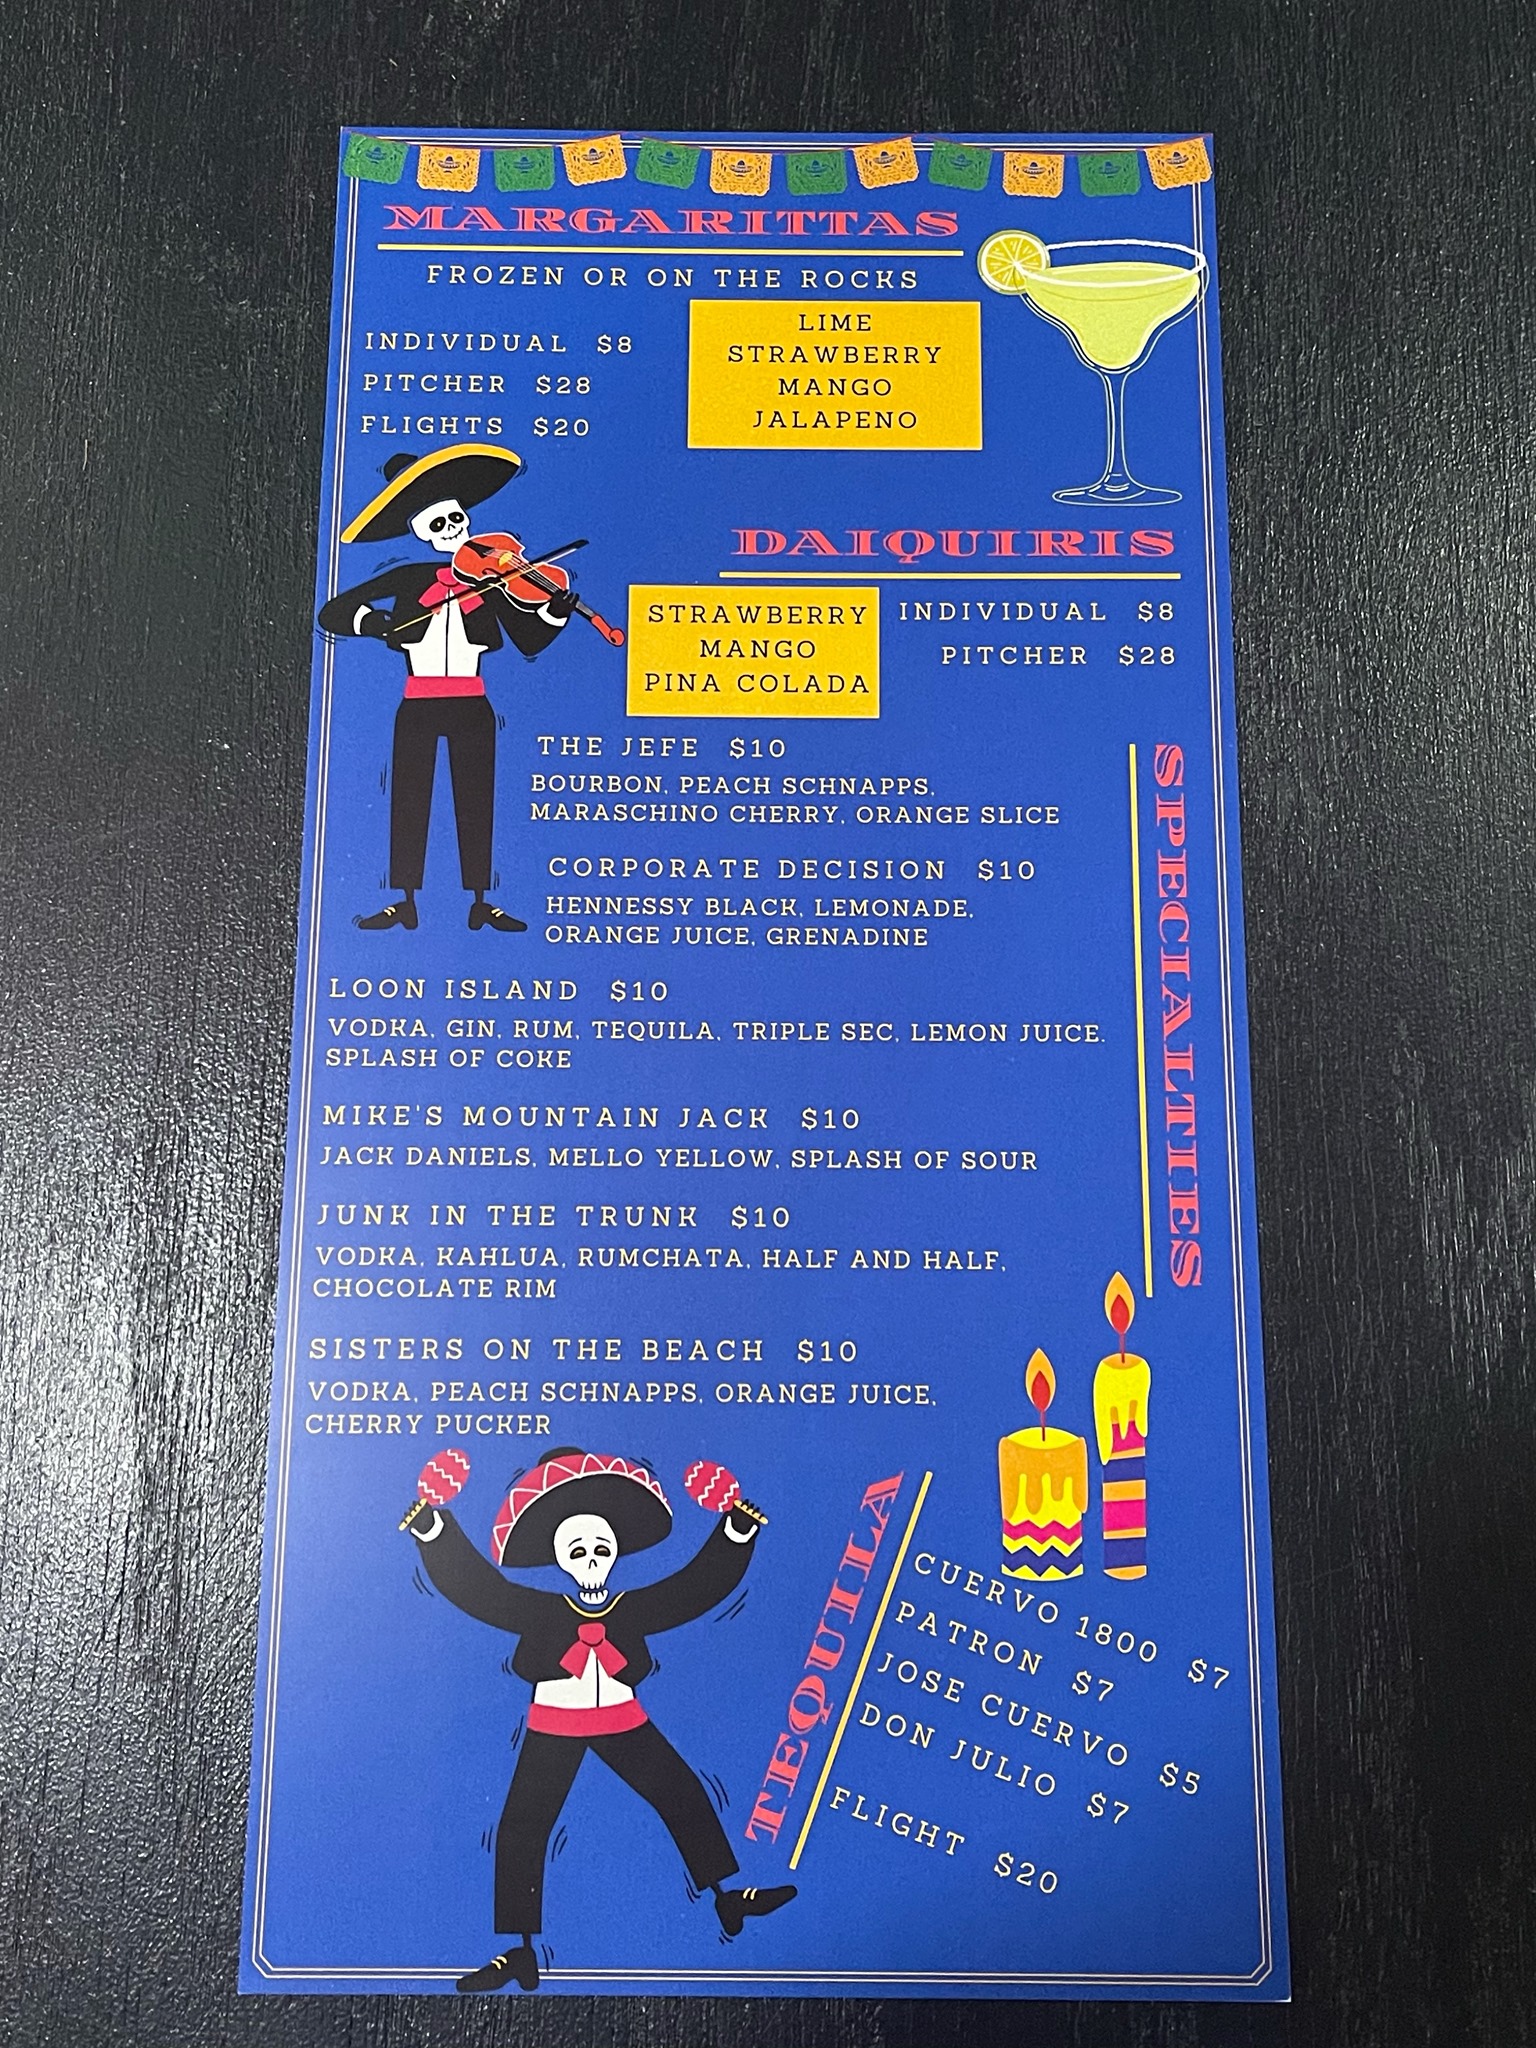 MARGARITTAS
FROZEN OR ON THE ROCKS
INDIVIDUAL $8
PITCHER $28
FLIGHTS $20
LIME
STRAWBERRY
MANGO
JALAPENO
DAIQUIRIS
STRAWBERRY
MANGO
PINA COLADA
INDIVIDUAL $8
PITCHER $28
SPECIALTIES
THE JEFE $10
BOURBON, PEACH SCHNAPPS,
MARASCHINO CHERRY, ORANGE SLICE
CORPORATE DECISION $10
HENNESSY BLACK, LEMONADE,
ORANGE JUICE, GRENADINE
LOON ISLAND $10
VODKA, GIN, RUM, TEQUILA, TRIPLE SEC, LEMON JUICE.
SPLASH OF COKE
MIKE'S MOUNTAIN JACK $10
JACK DANIELS, MELLO YELLOW, SPLASH OF SOUR
JUNK IN THE TRUNK $10
VODKA, KAHLUA, RUMCHATA, HALF AND HALF,
CHOCOLATE RIM
SISTERS ON THE BEACH $10
VODKA, PEACH SCHNAPPS, ORANGE JUICE,
CHERRY PUCKER
TEQUILA
CUERVO 1800 $7
PATRON $7
JOSE CUERVO $5
DON JULIO $7
FLIGHT $20